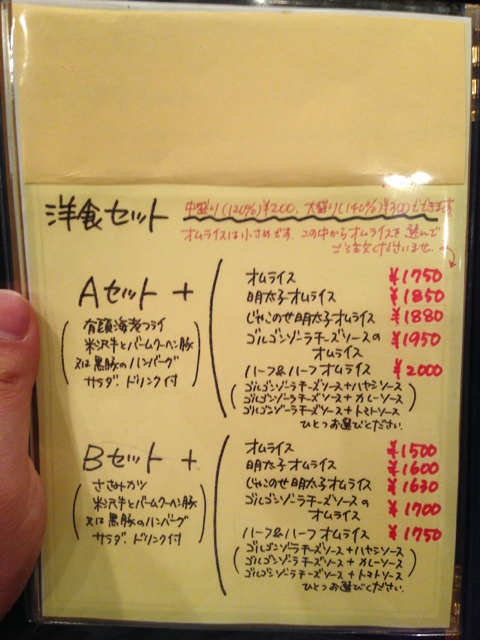 洋食セット 中盛り(120%)¥200、大盛り(140%)¥300できます
オムライスは小さめです。この中からオムライスを選んで
ご注文下さいませ。
Aセット +
(有頭海老フライ
米沢牛とバームクーヘン豚
又は黒豚のハンバーグ
サラダ、ドリンク付)
オムライス ¥1750
明太子オムライス ¥1850
じゃこのせ明太子オムライス ¥1880
ゴルゴンゾーラチーズソースの ¥1950
オムライス
ハーフ&ハーフオムライス ¥2000
(ゴルゴンゾーラチーズソース+ハヤシソース
ゴルゴンゾーラチーズソース+カレーソース
ゴルゴンゾーラチーズソース+トマトソース)
ひとつお選びください。
Bセット +
(ささみカツ
米沢牛とバームクーヘン豚
又は黒豚のハンバーグ
サラダ、ドリンク付)
オムライス ¥1500
明太子オムライス ¥1600
じゃこのせ明太子オムライス ¥1630
ゴルゴンゾーラチーズソースの ¥1700
オムライス
ハーフ&ハーフオムライス ¥1750
(ゴルゴンゾーラチーズソース+ハヤシソース
ゴルゴンゾーラチーズソース+カレーソース
ゴルゴンゾーラチーズソース+トマトソース)
ひとつお選びください。